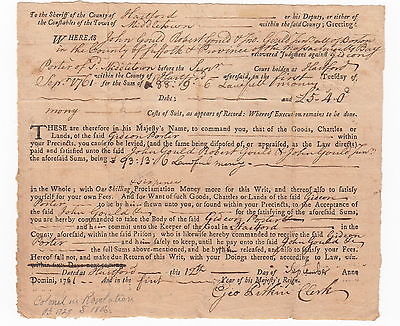 To the Sheriff of the County of Hartford or his Deputy, or either of
the Constables of the Town of Middletown within the said County; Greeting:
WHEREAS John Gould Robert Gould & Jno. Gould Junr. all of Boston
in the County of Suffolk & Province of the Massachusetts Bay
recovered Judgment against Gideon
Porter of sd. Middletown before the Court holden at Hartford
within the County of Hartford aforesaid, in the first Tuesday of
Sept. 1761 for the Sum of £88-19-6 Lawfull money
Debt; and £5-4-0
mony
Cost of Suit, as appears of Record: Whereof Execution remains to be done.
THESE are therefore in his Majesty's Name, to command you, that of the Goods, Chattles
or Lands, of the said Gideon Porter within your
Precincts, you cause to be levied, (and the same being disposed of, or appraised, as the Law directs)
paid and satisfied unto the said John Gould Robert Gould & John Gould junr. the
aforesaid Sums, being £93-13-6 Lawfull money
in the Whole; with One Shilling Proclamation Money more for this Writ, and thereof also to satisfy
yourself for your own Fees. And for Want of such Goods, Chattles or Lands of the said Gideon
Porter to be by him shewn unto you, or found within your Precincts, to the Acceptance of
the said John Gould &c for satisfying of the aforesaid Sums, you
are hereby commanded to take the Body of the said Gideon Porter
and him commit unto the Keeper of the Goal in Hartford in the
County aforesaid, within the said Prison; who is likewise hereby commanded to receive the said Gideon
Porter and him safely to keep, until he pay unto the said John Gould &c
the full Sums above-mentioned, and be by them released, and also satisfy your Fees.
Hereof fail not, and make due Return of this Writ, with your Doings therein, according to Law,
Dated at Hartford this 12th Day of September Anno
Domini, 1761 And in the first Year of his Majesty's Reign.
Geo Pitkin Clerk
Colonel in Revolution